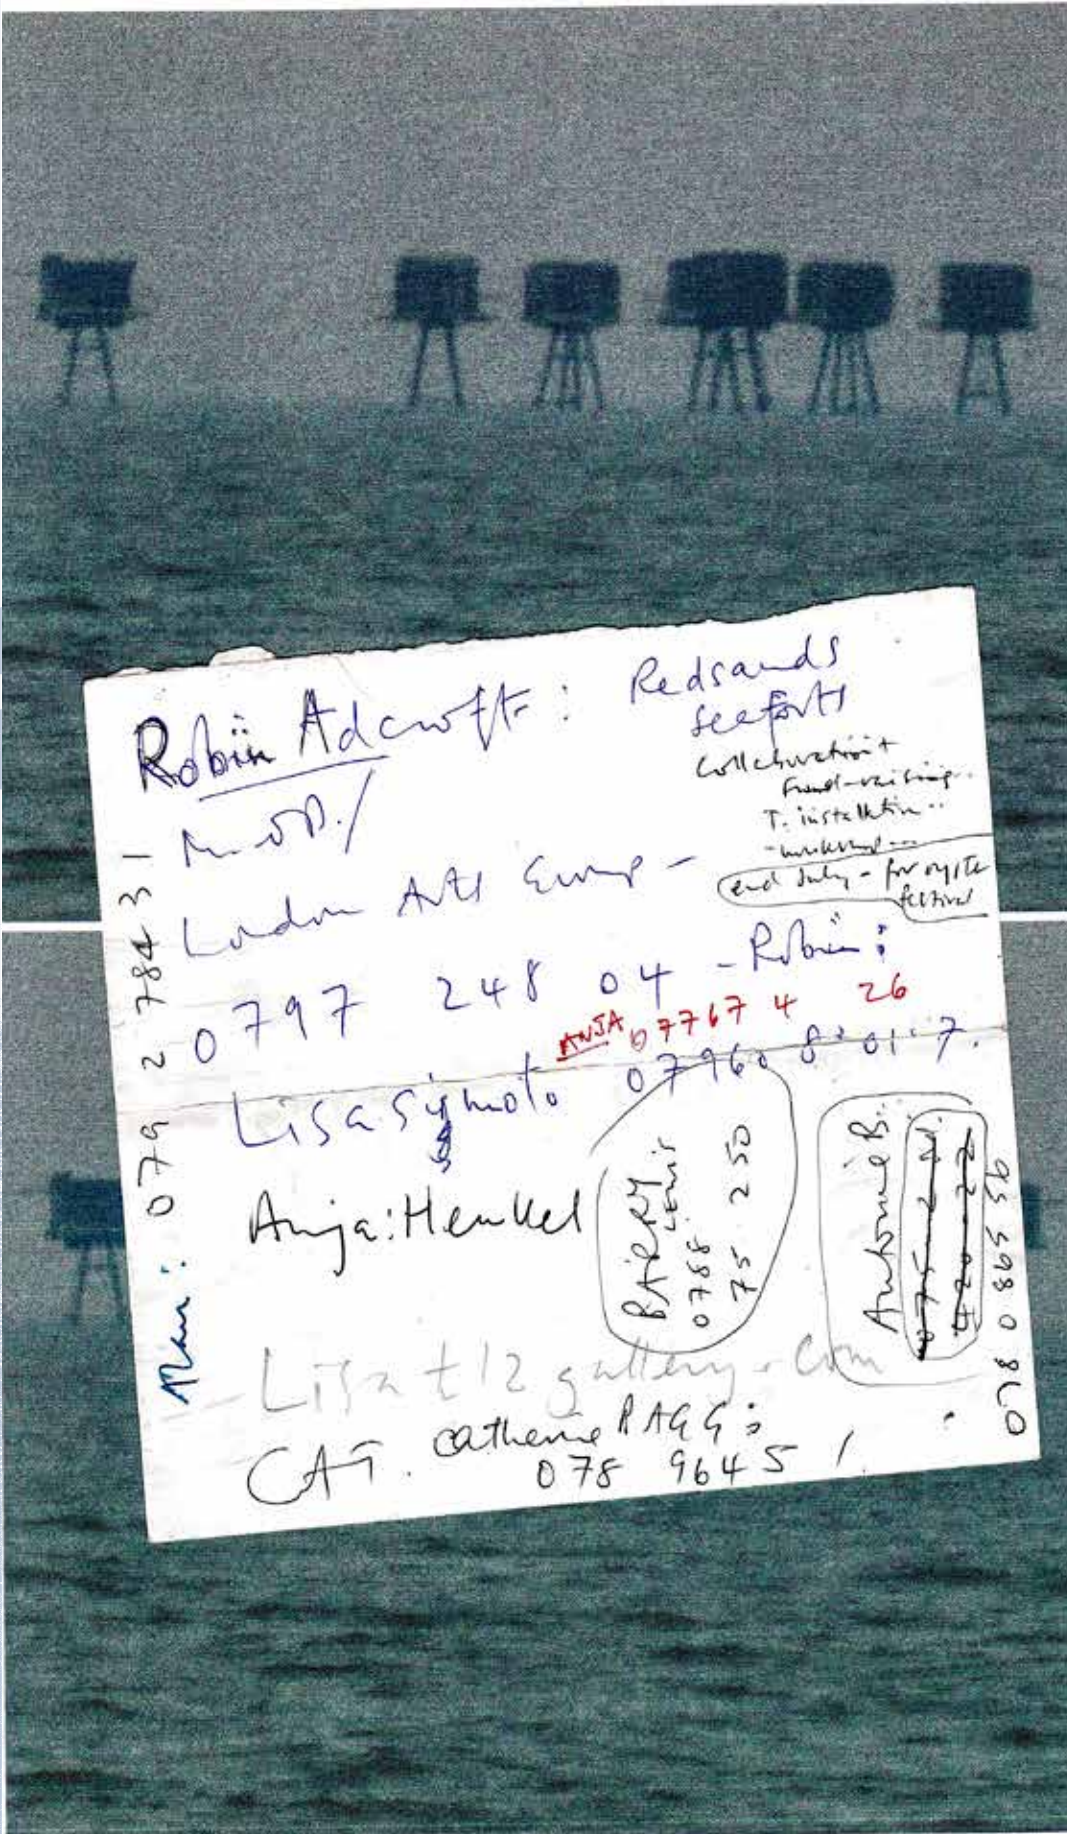 Robin Adcroft: Redsands
seeforts
Collaboration +
Fund-raising..
T. installation..
end July - for oyster
festival
M.O.D./
London Arts
0797 248 04 - Robin:
ANJA 07767 4 26
Lisa 07960 8 01 7.
Anja: Henkel
BARRY
LEWIS
0788
75 250
Antonie B.
075 2
420 22
Lisa t12gallery.com
CAT. Catherine RAGG:
078 9645 1
079 2 784 31